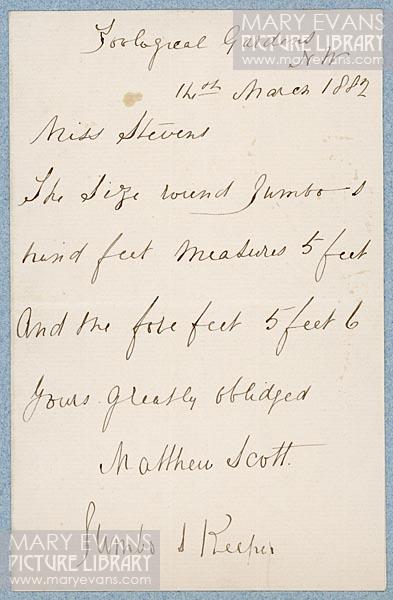 MARY EVANS
PICTURE LIBRARY
www.maryevans.com
Zoological Gardens
N W
14th March 1882
Miss Stevens
The Size round Jumbo s
hind feet Measures 5 feet
And the fore feet 5 feet 6
Yours greatly oblidged
Matthew Scott.
Jumbo s Keeper
MARY EVANS
PICTURE LIBRARY
www.maryevans.com